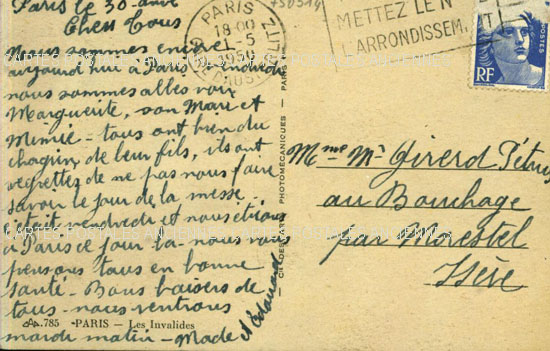 Paris le 30 avril
Chers tous
Nous sommes encore
aujourd'hui à Paris. Vendredi
nous sommes allés voir
Marguerite, son Mari et
Mimie - tous ont bien du
chagrin de leur fils, ils ont
regrettés de ne pas nous faire
savoir le jour de la messe
c'était vendredi et nous étions
à Paris ce jour là - nous vous
pensons tous en bonne
santé - Bons baisers de
tous - nous rentrons
mardi matin - Made et Edouard
785 - PARIS - Les Invalides
PARIS
18 00
1-5
METTEZ LE N°
L'ARRONDISSEM NT
RF
POSTES
PHOTOMÉCANIQUES - PARIS
Mme Mr Girerd Pétrus
au Bouchage
par Morestel
Isère
CARTES POSTALES ANCIENNES